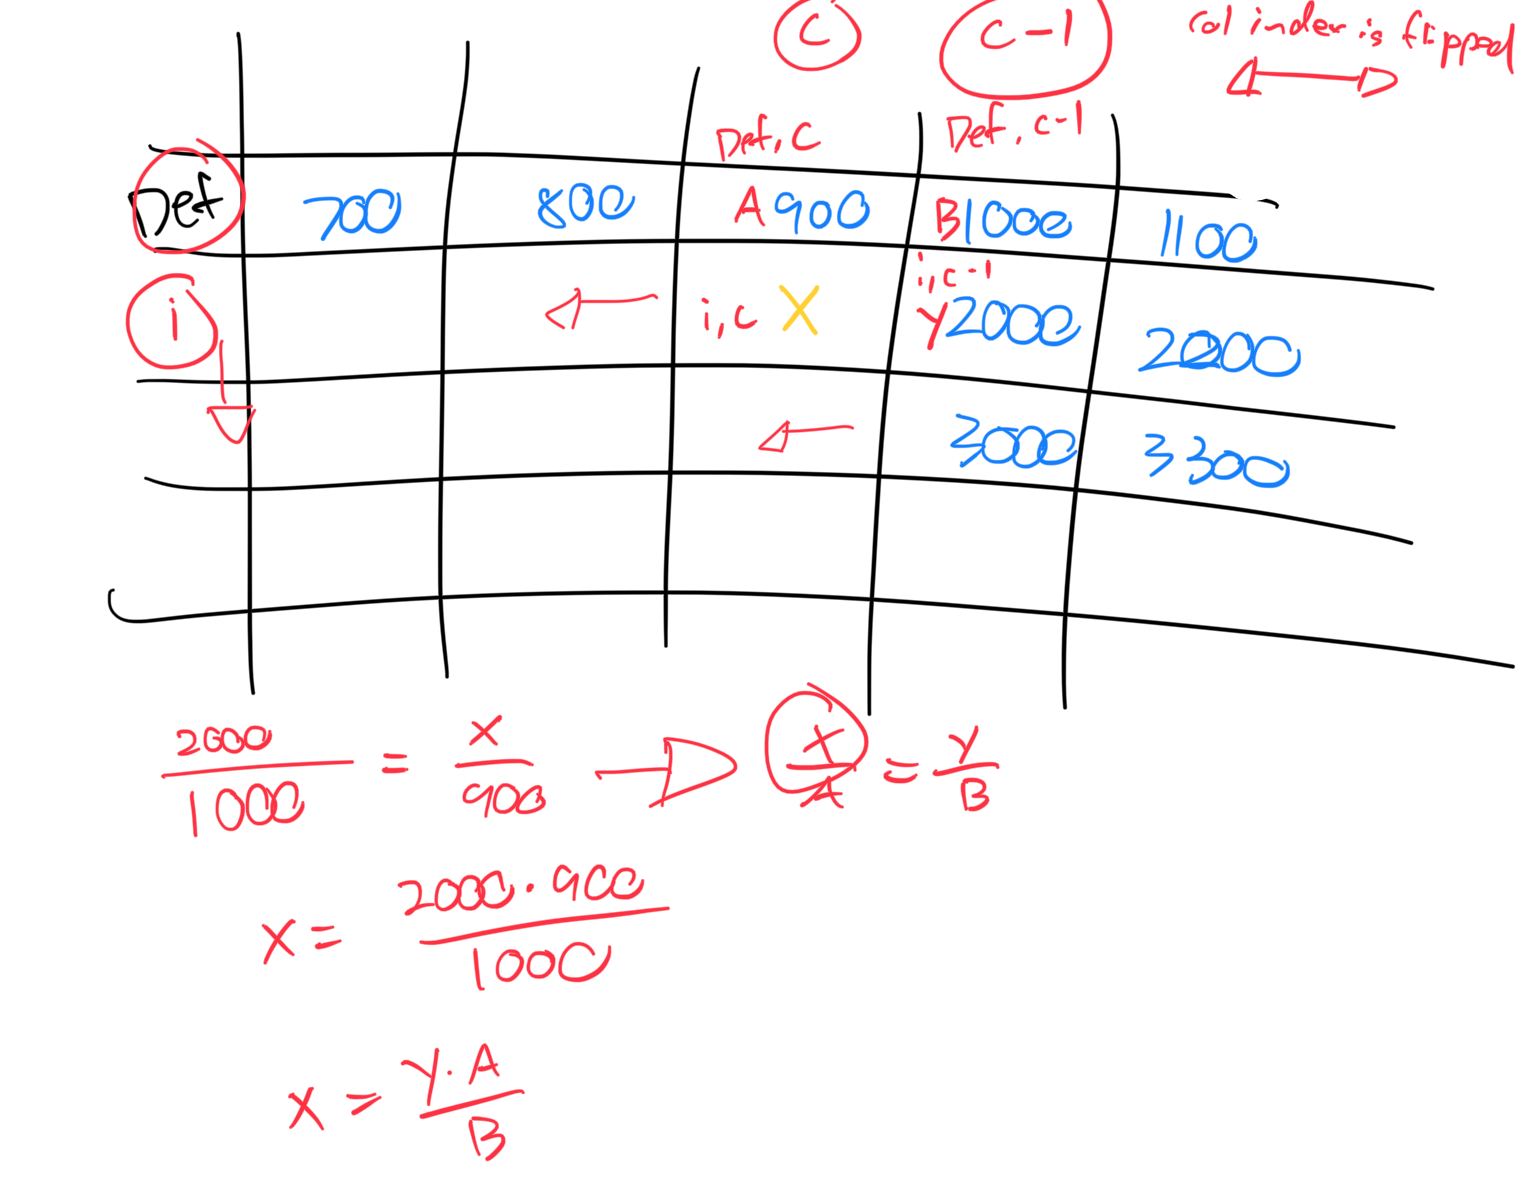 C C-1 Col index is flipped
Def, C Def, C-1
Def 700 800 A 900 B 1000 1100
i, c-1
i i, c X Y 2000 2200
3000 3300
2000 / 1000 = X / 900 X / A = Y / B
X = 2000 · 900 / 1000
X = Y · A / B